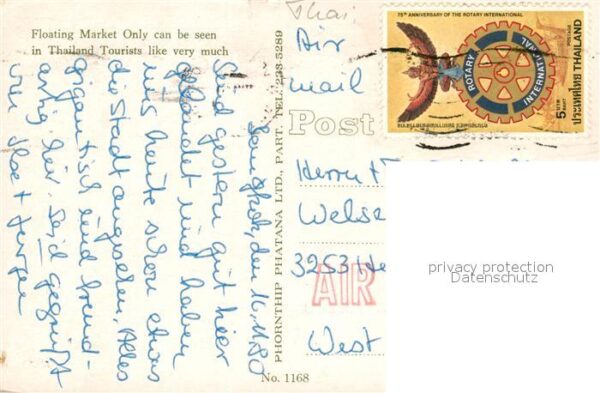 Floating Market Only can be seen
in Thailand Tourists like very much
Bangkok, den 16.11.80
Sind gestern gut hier
gelandet und haben
uns heute schon etwas
die Stadt angesehen. Alles
gigantisch und fremd-
artig hier. Seid gegrüßt
von Ilse + Jürgen
PHORNTHIP PHATANA LTD., PART. TEL. 238 5289
No. 1168
Thai
Air
mail
Post
75TH ANNIVERSARY OF THE ROTARY INTERNATIONAL
POSTAGE
ROTARY
INTERNATIONAL
5 BAHT
ประเทศไทย THAILAND
Herrn
3253
AIR
West
privacy protection
Datenschutz